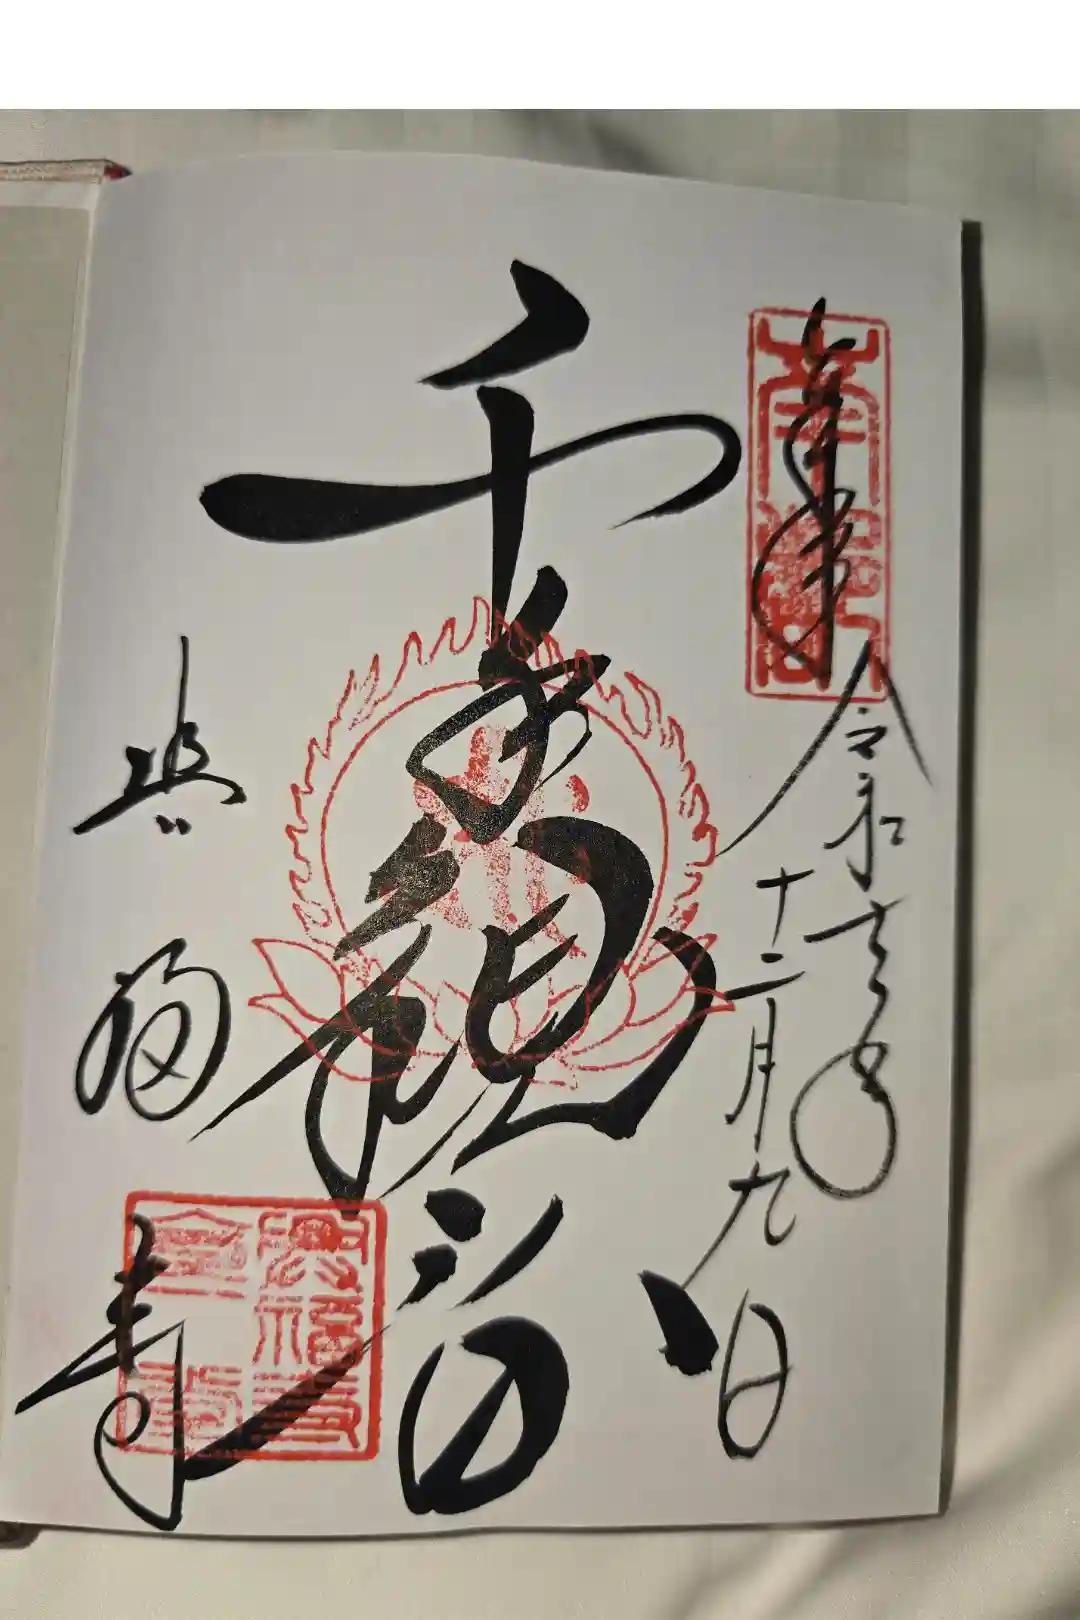 奉拝
令和六年
十二月九日
千手観音
興福寺